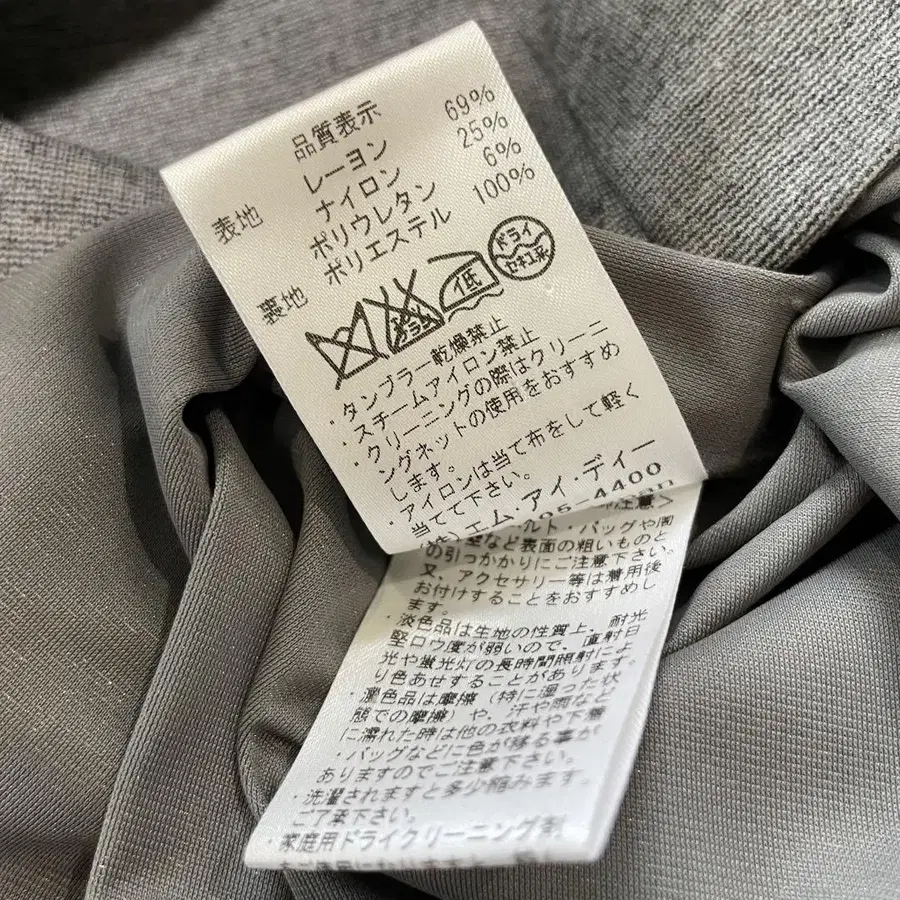 品質表示
表地 レーヨン 69%
ナイロン 25%
ポリウレタン 6%
裏地 ポリエステル 100%
エンソ サラシ イ 低 ドライ セキユ系
・タンブラー乾燥禁止
・スチームアイロン禁止
・クリーニングの際はクリーニ
ングネットの使用をおすすめ
します。
・アイロンは当て布をして軽く
当てて下さい。
(株)エム・アイ・ディー
05-4400
注意>
ルト・バッグや間
など表面の粗いものと
の引っかかりにご注意下さい。
又、アクセサリー等は着用後
お付けすることをおすすめし
ます。
・淡色品は生地の性質上、耐光
堅ロウ度が弱いので、直射日
光や蛍光灯の長時間照射によ
り色あせすることがあります。
・濃色品は摩擦(特に湿った状
態での摩擦)や、汗や雨など
に濡れた時は他の衣料や下着
・バッグなどに色が移る事が
ありますのでご注意下さい。
・洗濯されますと多少縮みます。
ご了承下さい。
・家庭用ドライクリーニング剤
をご使用になりますと